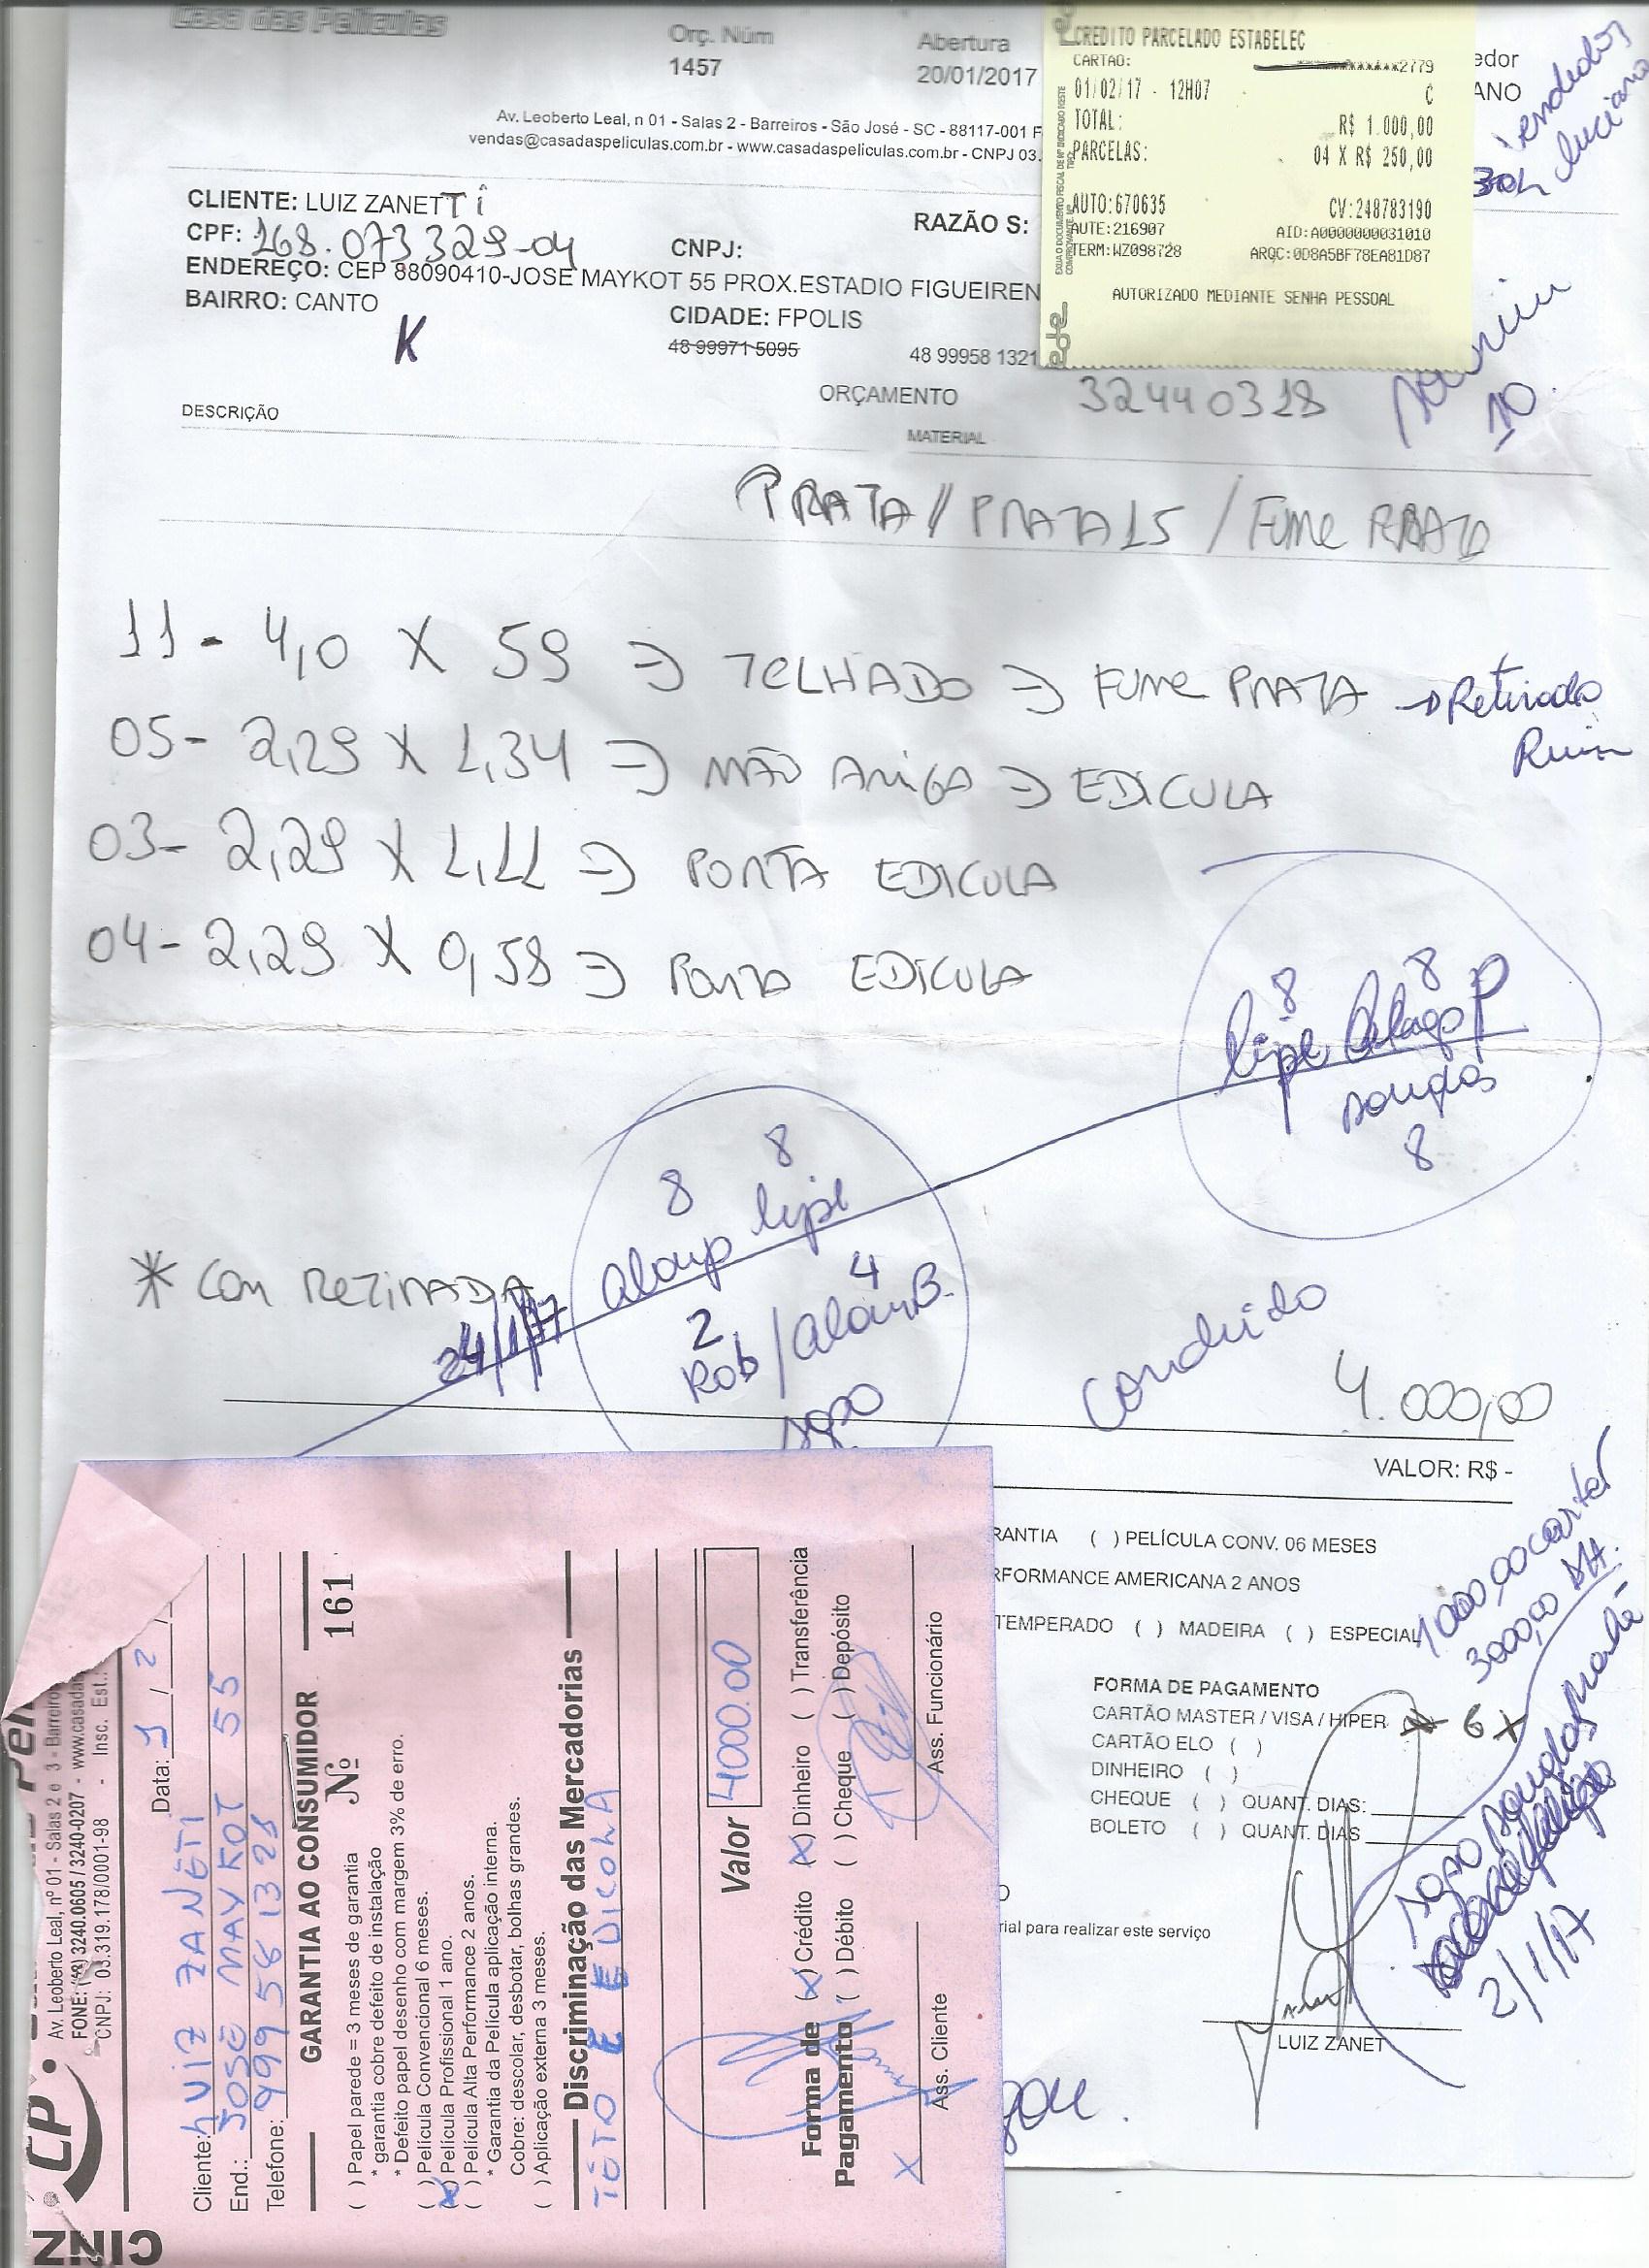 Casa das Películas
Orç. Núm
1457
Abertura
20/01/2017
edor
ANO
Av. Leoberto Leal, n 01 - Salas 2 - Barreiros - São José - SC - 88117-001 F
vendas@casadaspeliculas.com.br - www.casadaspeliculas.com.br - CNPJ 03.
CREDITO PARCELADO ESTABELEC
CARTAO:
2779
01/02/17 - 12H07
C
TOTAL:
R$ 1.000,00
PARCELAS:
04 X R$ 250,00
AUTO:670635
CV:248783190
AUTE:216907
AID:A0000000031010
TERM:WZ098728
ARQC:0D8A5BF78EA81D87
AUTORIZADO MEDIANTE SENHA PESSOAL
luciano
CLIENTE: LUIZ ZANETTi
CPF: 268.073329-04
CNPJ:
RAZÃO S:
ENDEREÇO: CEP 88090410-JOSE MAYKOT 55 PROX.ESTADIO FIGUEIREN
BAIRRO: CANTO
K
CIDADE: FPOLIS
48 99971 5095
48 99958 1321
32440318
10.
ORÇAMENTO
DESCRIÇÃO
MATERIAL
PRATA // PRATA 15 / FUME PRATA
11 - 4,0 X 59 => TELHADO => FUME PRATA -> Retirado
Ruim
05 - 2,29 X 1,34 => MÃO AMIGA => EDICULA
03 - 2,29 X 1,11 => PORTA EDICULA
04 - 2,29 X 0,58 => PORTA EDICULA
8 8
lipe
8
8 8
lipe
2 4
Rob /
* COM RETIRADA
24/1/17
Concluido
4.000,00
VALOR: R$ -
RANTIA ( ) PELÍCULA CONV. 06 MESES
RFORMANCE AMERICANA 2 ANOS
TEMPERADO ( ) MADEIRA ( ) ESPECIAL
1000,00 cartao
3000,00
FORMA DE PAGAMENTO
CARTÃO MASTER / VISA / HIPER 6 X
CARTÃO ELO ( )
DINHEIRO ( )
CHEQUE ( ) QUANT. DIAS:
BOLETO ( ) QUANT. DIAS
rial para realizar este serviço
2/1/17
LUIZ ZANET
CP
CINZ
Av. Leoberto Leal, nº 01 - Salas 2 e 3 - Barreiro
FONE: (48) 3240.0605 / 3240-0207 - www.casada
CNPJ: 03.319.178/0001-98 - Insc. Est.:
Data: 1 / 2 /
Cliente: LUiZ ZANETi
End.: JOSE MAYKOT 55
Telefone: 999 58 13 21
GARANTIA AO CONSUMIDOR
Nº 161
( ) Papel parede = 3 meses de garantia
* garantia cobre defeito de instalação
* Defeito papel desenho com margem 3% de erro.
( ) Película Convencional 6 meses.
(X) Película Profissional 1 ano.
( ) Película Alta Performance 2 anos.
* Garantia da Película aplicação interna.
Cobre: descolar, desbotar, bolhas grandes.
( ) Aplicação externa 3 meses.
Discriminação das Mercadorias
TETO E EDICOLA
Valor 4000.00
Forma de Pagamento
(X) Crédito (X) Dinheiro ( ) Transferência
( ) Débito ( ) Cheque ( ) Depósito
X
Ass. Cliente
Ass. Funcionário